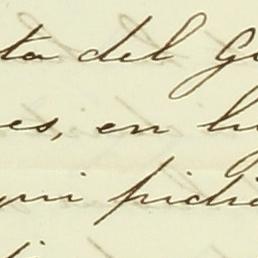 ta del G
es, en lu
qui pidi